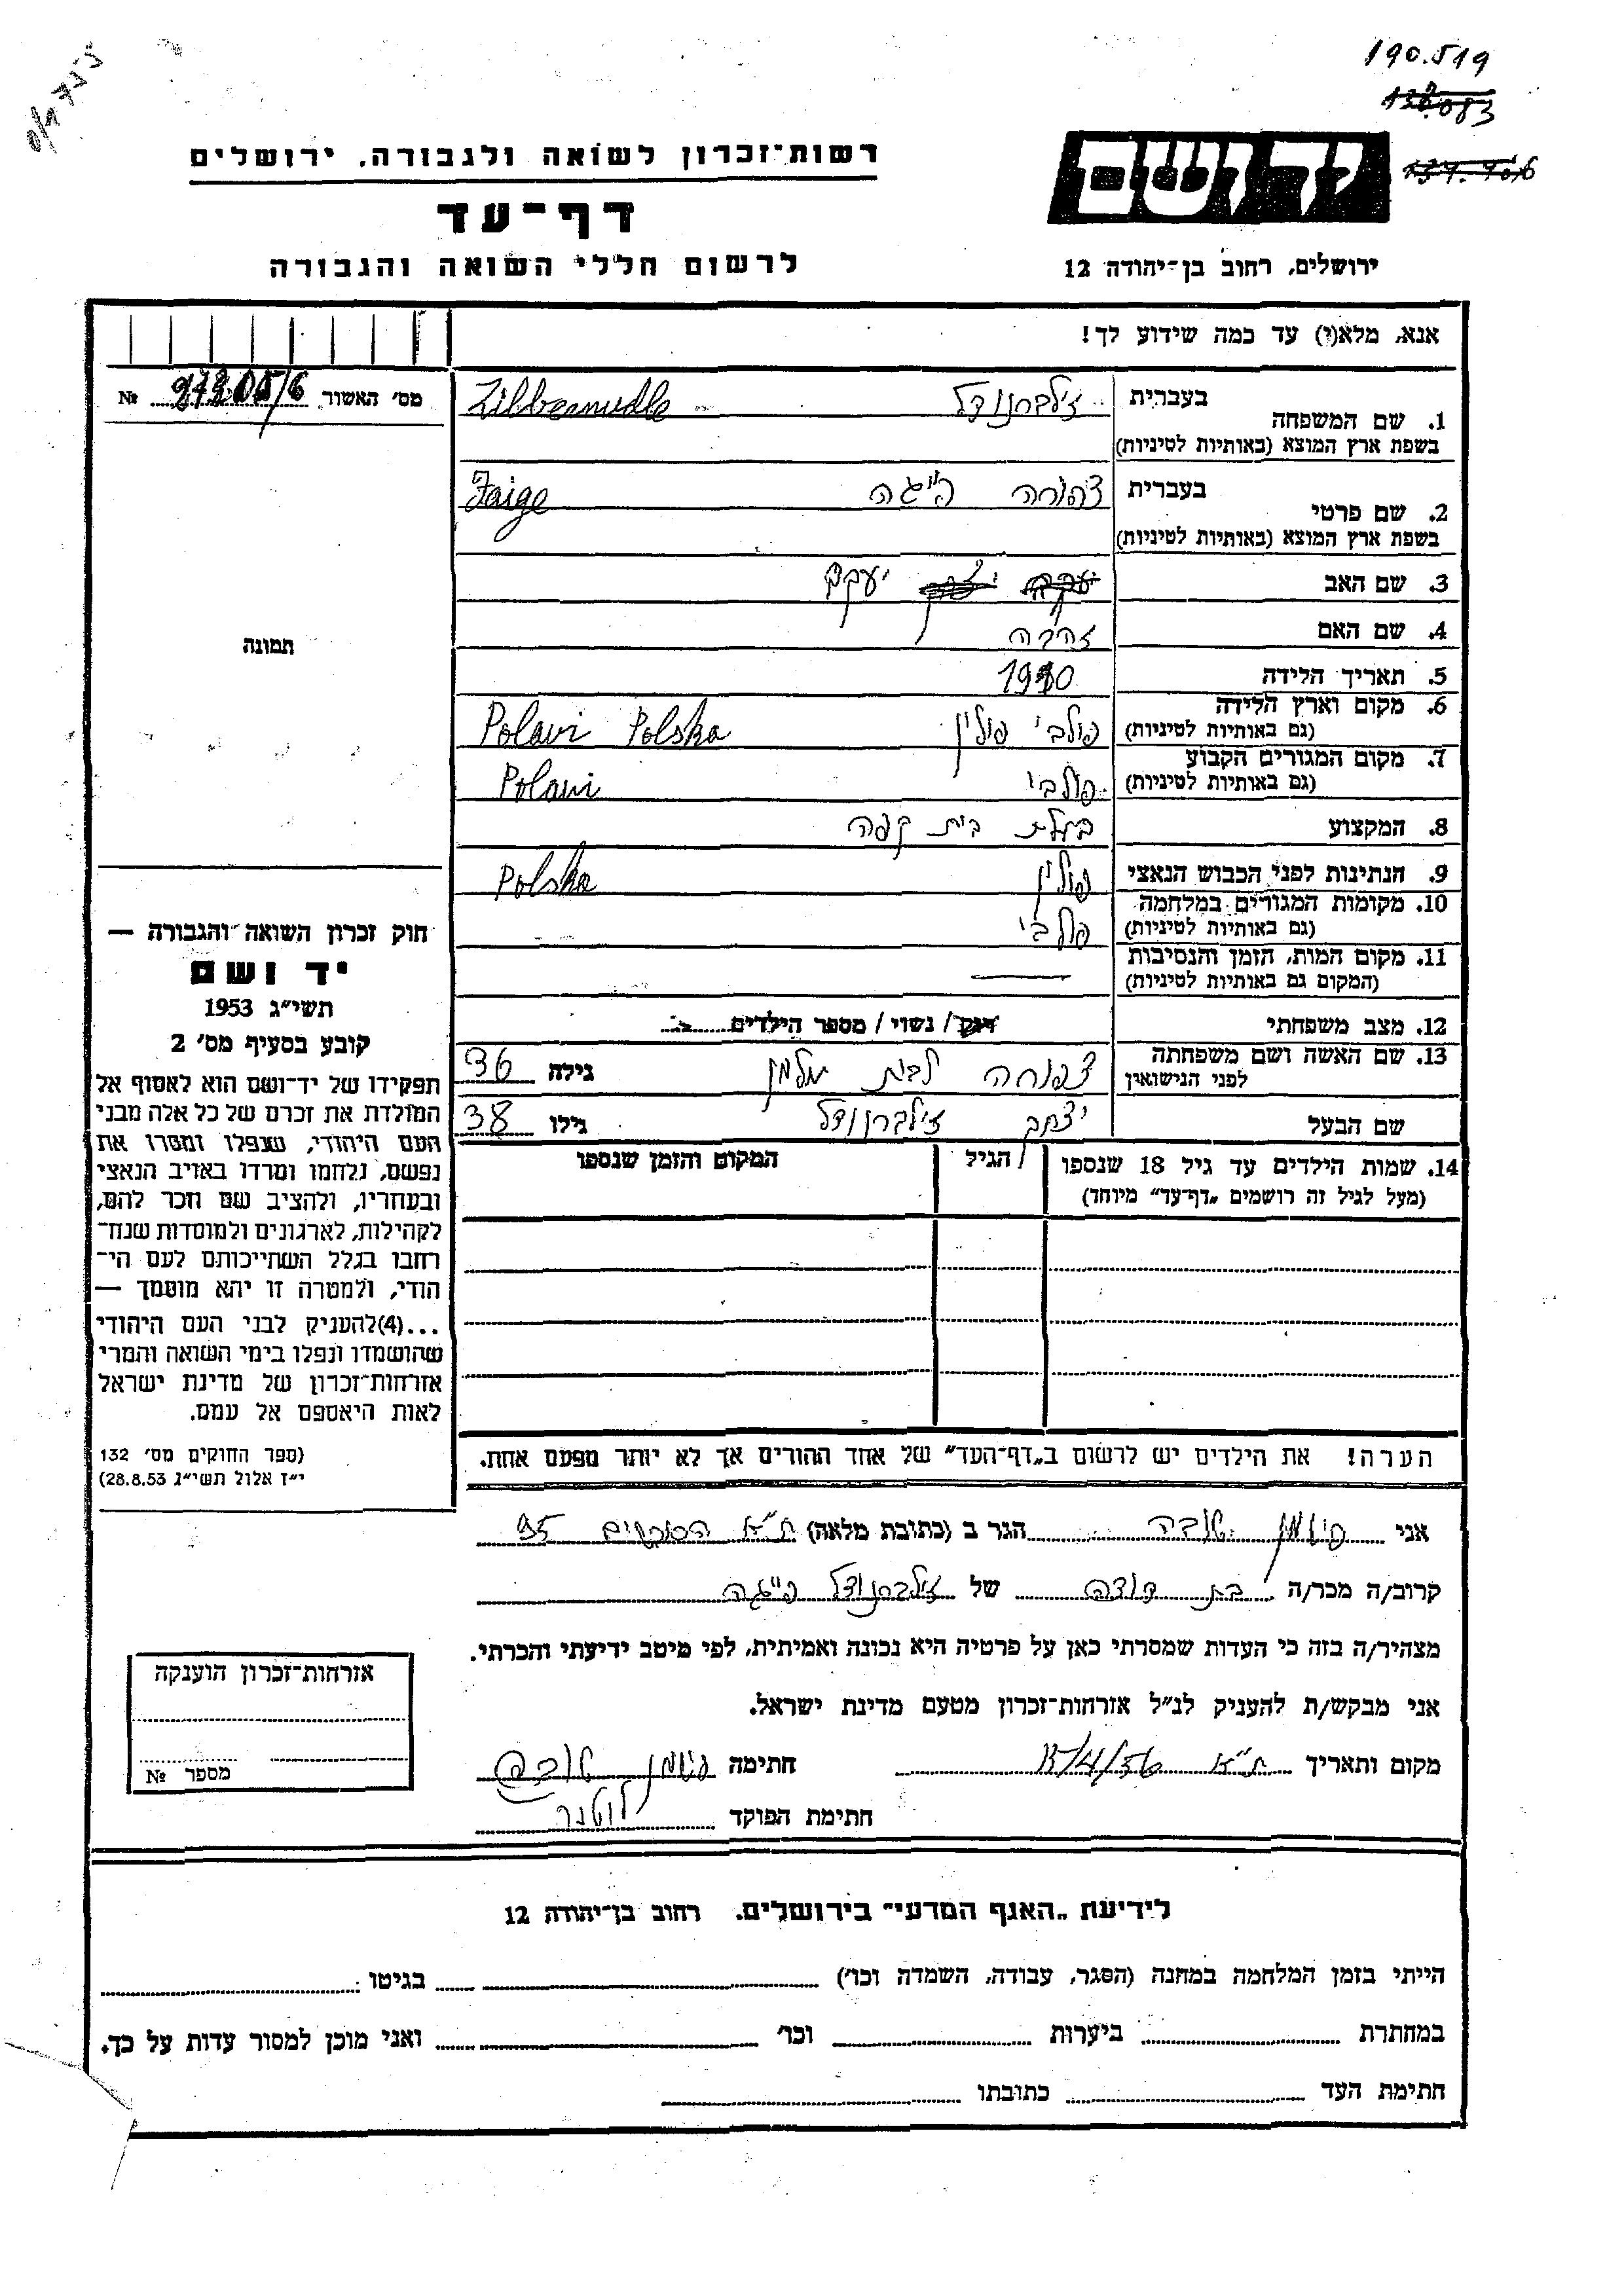 190.519
רשות־זכרון לשואה ולגבורה, ירושלים
יד ושם
דף־עד
לרשום חללי השואה והגבורה
ירושלים, רחוב בן־יהודה 12
אנא, מלא(י) עד כמה שידוע לך!
מס' האשור №
1. שם המשפחה
בעברית זילברנודל Zilbernudle
בשפת ארץ המוצא (באותיות לטיניות)
2. שם פרטי
בעברית צפורה פייגה Faige
בשפת ארץ המוצא (באותיות לטיניות)
3. שם האב יעקב
4. שם האם זהבה
5. תאריך הלידה 1910
6. מקום וארץ הלידה פולבי פולין Polawi Polska
(גם באותיות לטיניות)
7. מקום המגורים הקבוע פולבי Polawi
(גם באותיות לטיניות)
8. המקצוע בעלת בית קפה
9. הנתינות לפני הכבוש הנאצי פולין Polska
10. מקומות המגורים במלחמה פולבי
(גם באותיות לטיניות)
11. מקום המות, הזמן והנסיבות
(המקום גם באותיות לטיניות)
12. מצב משפחתי רוק / נשוי / מספר הילדים
13. שם האשה ושם משפחתה צפורה לבית גילה 36
לפני הנישואין
שם הבעל זילברנודל גילו 38
14. שמות הילדים עד גיל 18 שנספו הגיל המקום והזמן שנספו
(מעל לגיל זה רושמים „דף־עד” מיוחד)
הערה! את הילדים יש לרשום ב„דף־העד” של אחד ההורים אך לא יותר מפעם אחת.
תמונה
חוק זכרון השואה והגבורה —
יד ושם
תשי״ג 1953
קובע בסעיף מס' 2
תפקידו של יד־ושם הוא לאסוף אל
המולדת את זכרם של כל אלה מבני
העם היהודי, שנפלו ומסרו את
נפשם, נלחמו ומרדו באויב הנאצי
ובעוזריו, ולהציב שם וזכר להם,
לקהילות, לארגונים ולמוסדות שנח־
רבו בגלל השתייכותם לעם הי־
הודי, ולמטרה זו יהא מוסמך —
...(4)להעניק לבני העם היהודי
שהושמדו ונפלו בימי השואה והמרי
אזרחות־זכרון של מדינת ישראל
לאות היאספם אל עמם.
(ספר החוקים מס' 132
י״ז אלול תשי״ג 28.8.53)
אני טובה הגר ב (כתובת מלאה) ת״א 95
קרוב/ה מכר/ה בת דודה של זילברנודל פייגה
מצהיר/ה בזה כי העדות שמסרתי כאן על פרטיה היא נכונה ואמיתית, לפי מיטב ידיעתי והכרתי.
אני מבקש/ת להעניק לנ״ל אזרחות־זכרון מטעם מדינת ישראל.
מקום ותאריך ת״א חתימה טובה
חתימת הפוקד
אזרחות־זכרון הוענקה
מספר №
לידיעת „האגף המדעי” בירושלים. רחוב בן־יהודה 12
הייתי בזמן המלחמה במחנה (הסגר, עבודה, השמדה וכו') בגיטו
במחתרת ביערות וכו' ואני מוכן למסור עדות על כך.
חתימת העד כתובתו